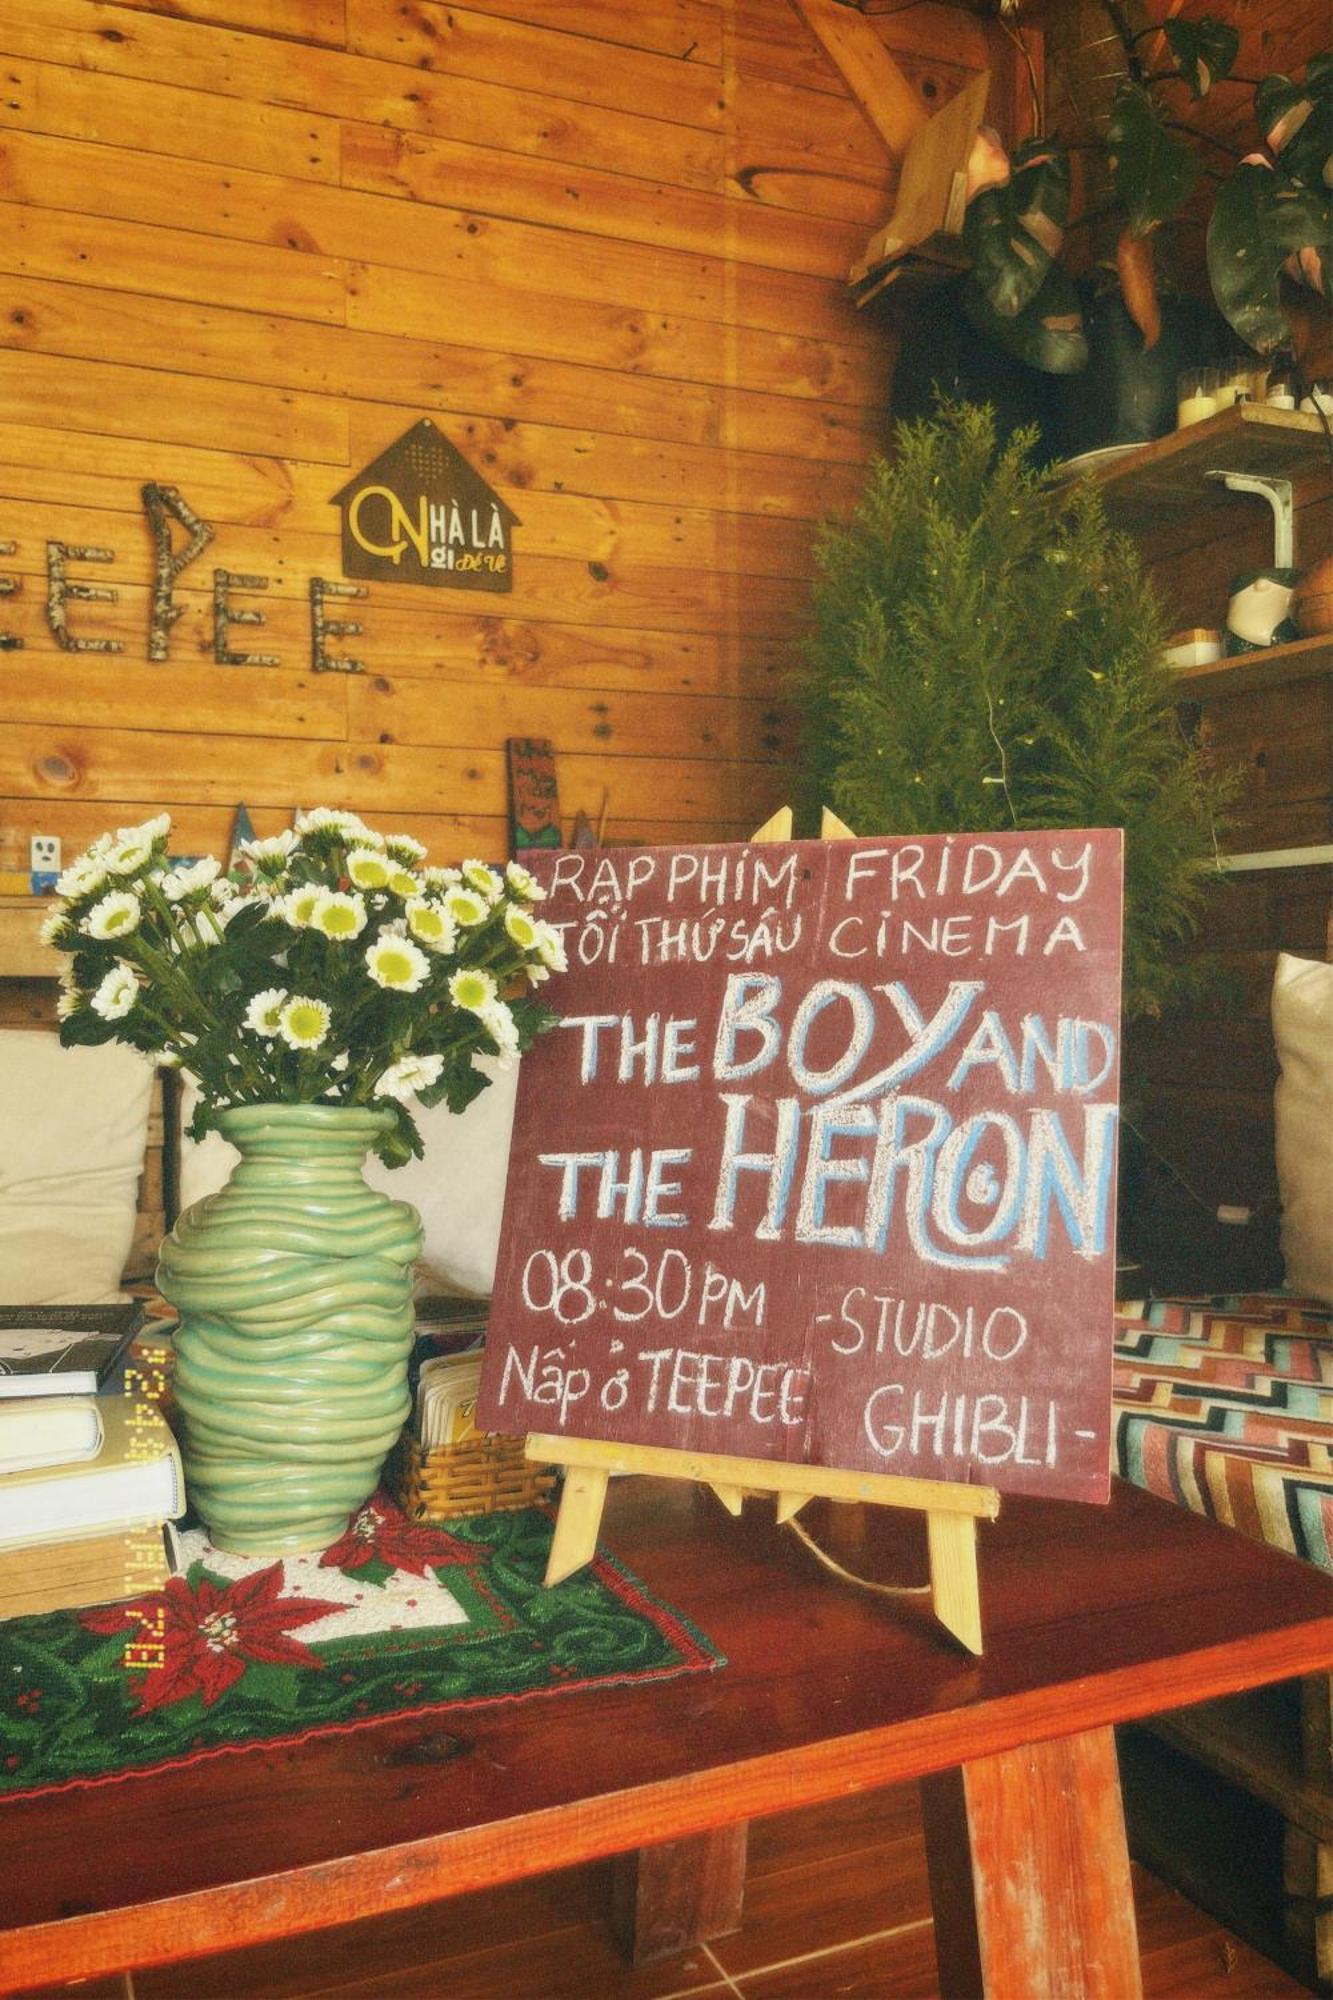 EEPEE
NHÀ LÀ
nơi Để Về
RẠP PHIM
TỐI THỨ SÁU
FRIDAY
CINEMA
THE BOY AND
THE HERON
08:30 PM
Nấp ở TEEPEE
-STUDIO
GHIBLI-